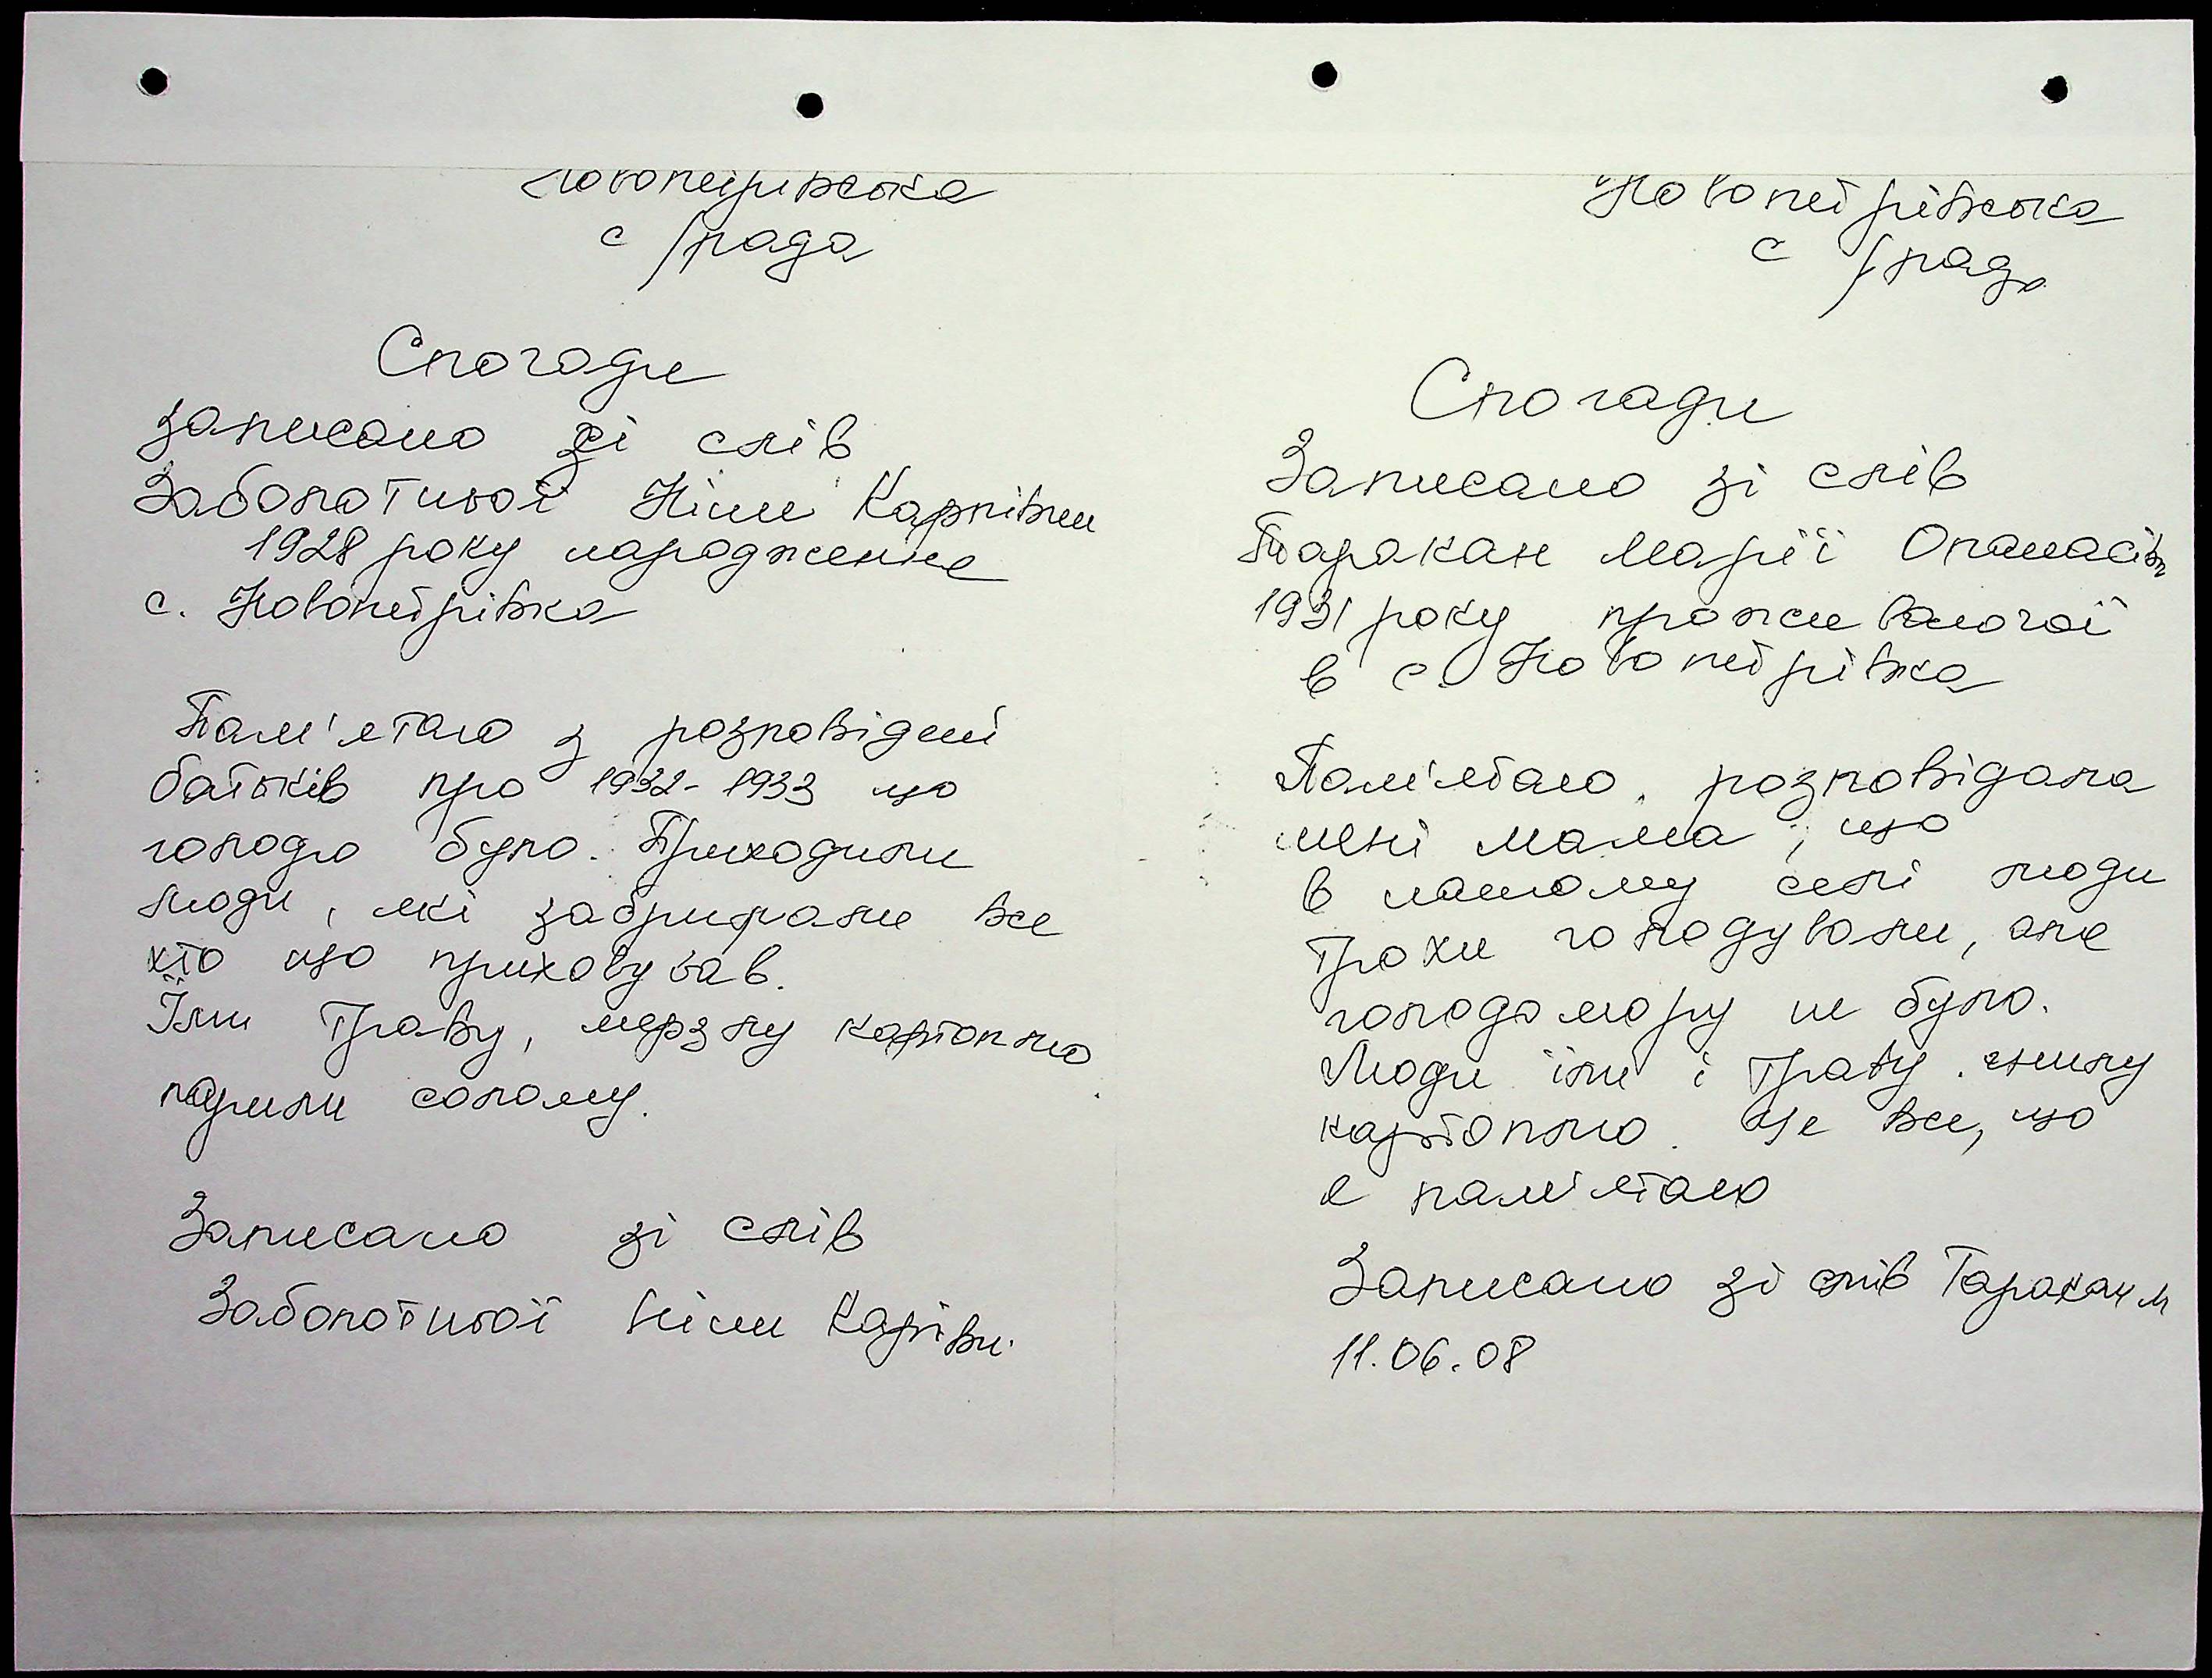 Новопетрівська
с/рада
Спогади
записано зі слів
Заболотньої Ніни Карпівни
1928 року народження
с. Новопетрівка
Пам'ятаю з розповідей
батьків про 1932-1933 що
голодно було. Приходили
люди, які забирали все
хто що приховував.
Їли траву, мерзлу картоплю
парили солому.
Записано зі слів
Заболотньої Ніни Карпівн.
Новопетрівська
с/рада
Спогади
Записано зі слів
Таракан Марії Опанасівн
1931 року проживаючої
в с. Новопетрівка
Пам'ятаю, розповідала
мені мама, що
в нашому селі люди
трохи голодували, але
голодомору не було.
Люди їли і траву, гнилу
картоплю. Це все, що
я пам'ятаю
Записано зі слів Таракан М
11.06.08